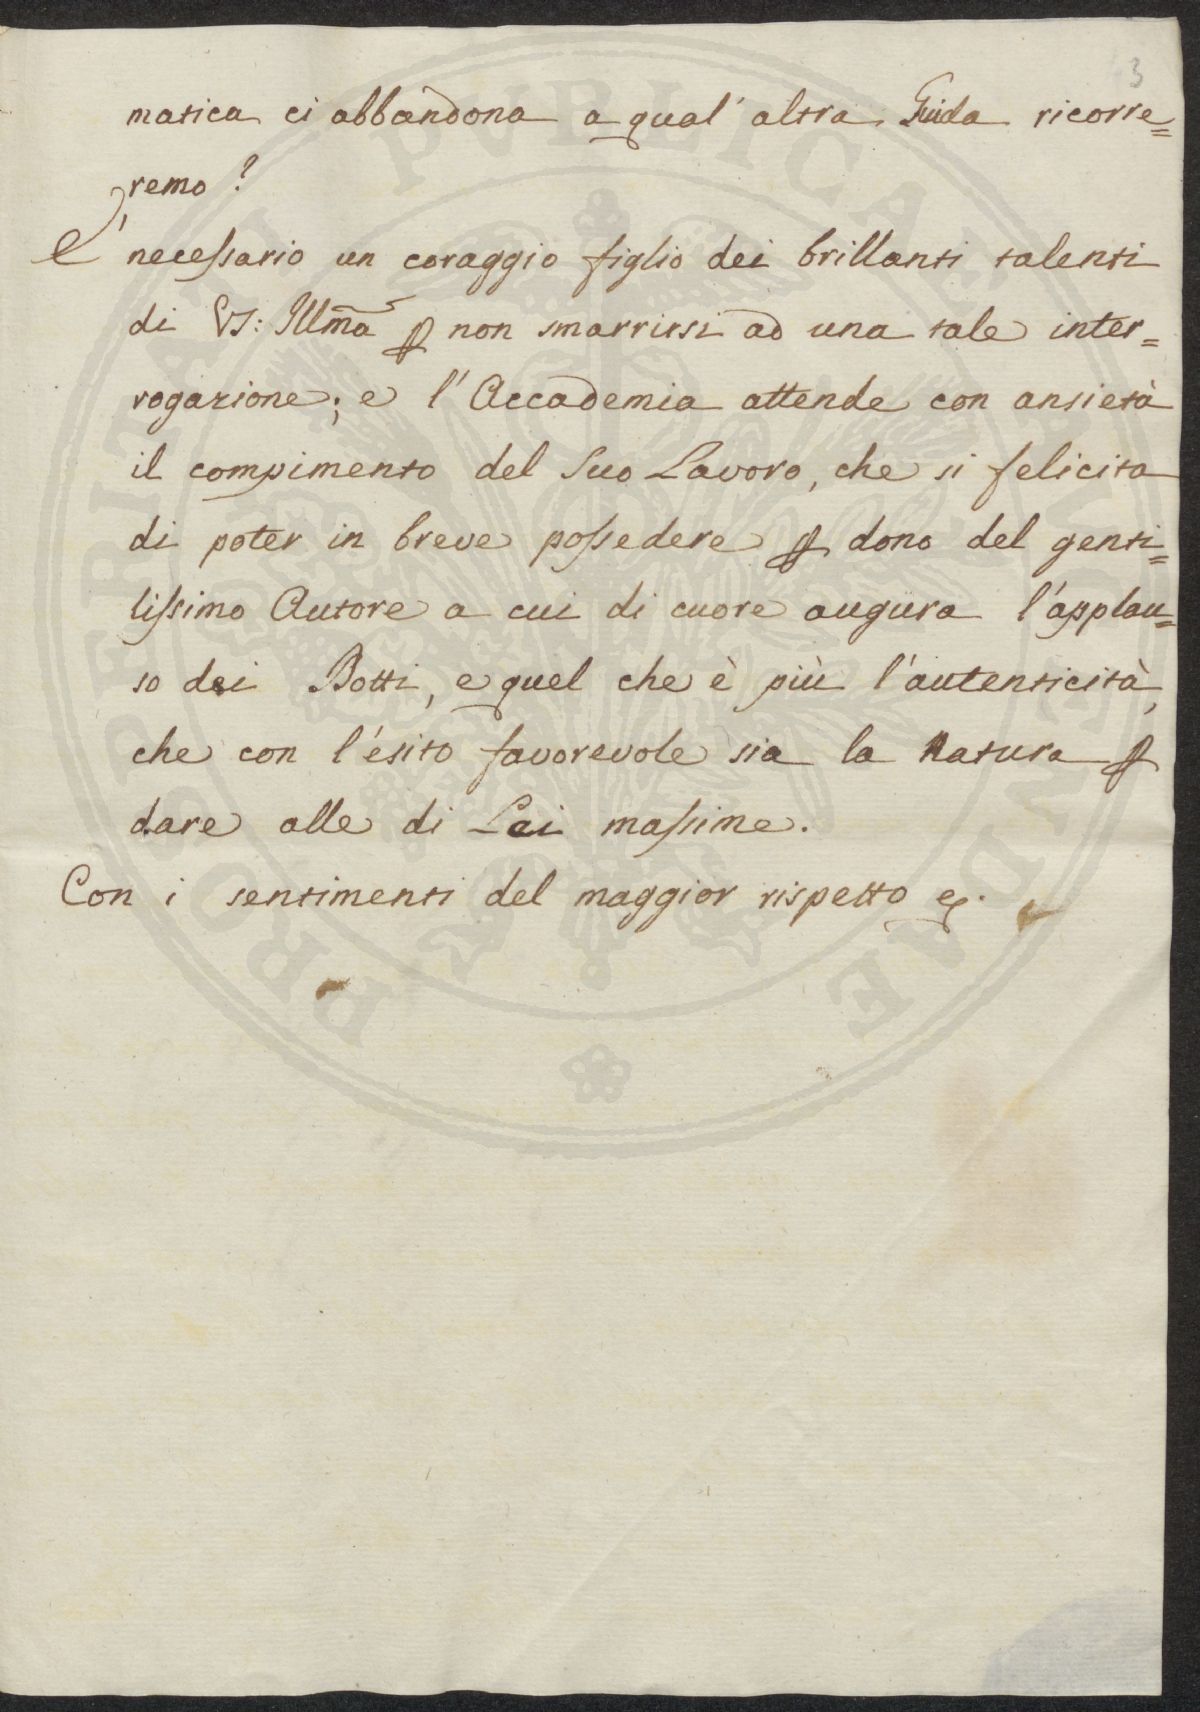 3
matica ci abbandona a qual' altra Guida ricorre=
remo?
E' necessario un coraggio figlio dei brillanti talenti
di VS: Illma ꝑ non smarrirsi ad una tale inter=
rogazione; e l'Accademia attende con ansietà
il compimento del Suo Lavoro, che si felicita
di poter in breve possedere ꝑ dono del genti=
lissimo Autore a cui di cuore augura l'applau=
so dei Dotti, e quel che è più l'autenticità,
che con l'esito favorevole sia la Natura ꝑ
dare alle di Lei massime.
Con i sentimenti del maggior rispetto
PROSPERITATI PVBLICAE AVGENDAE